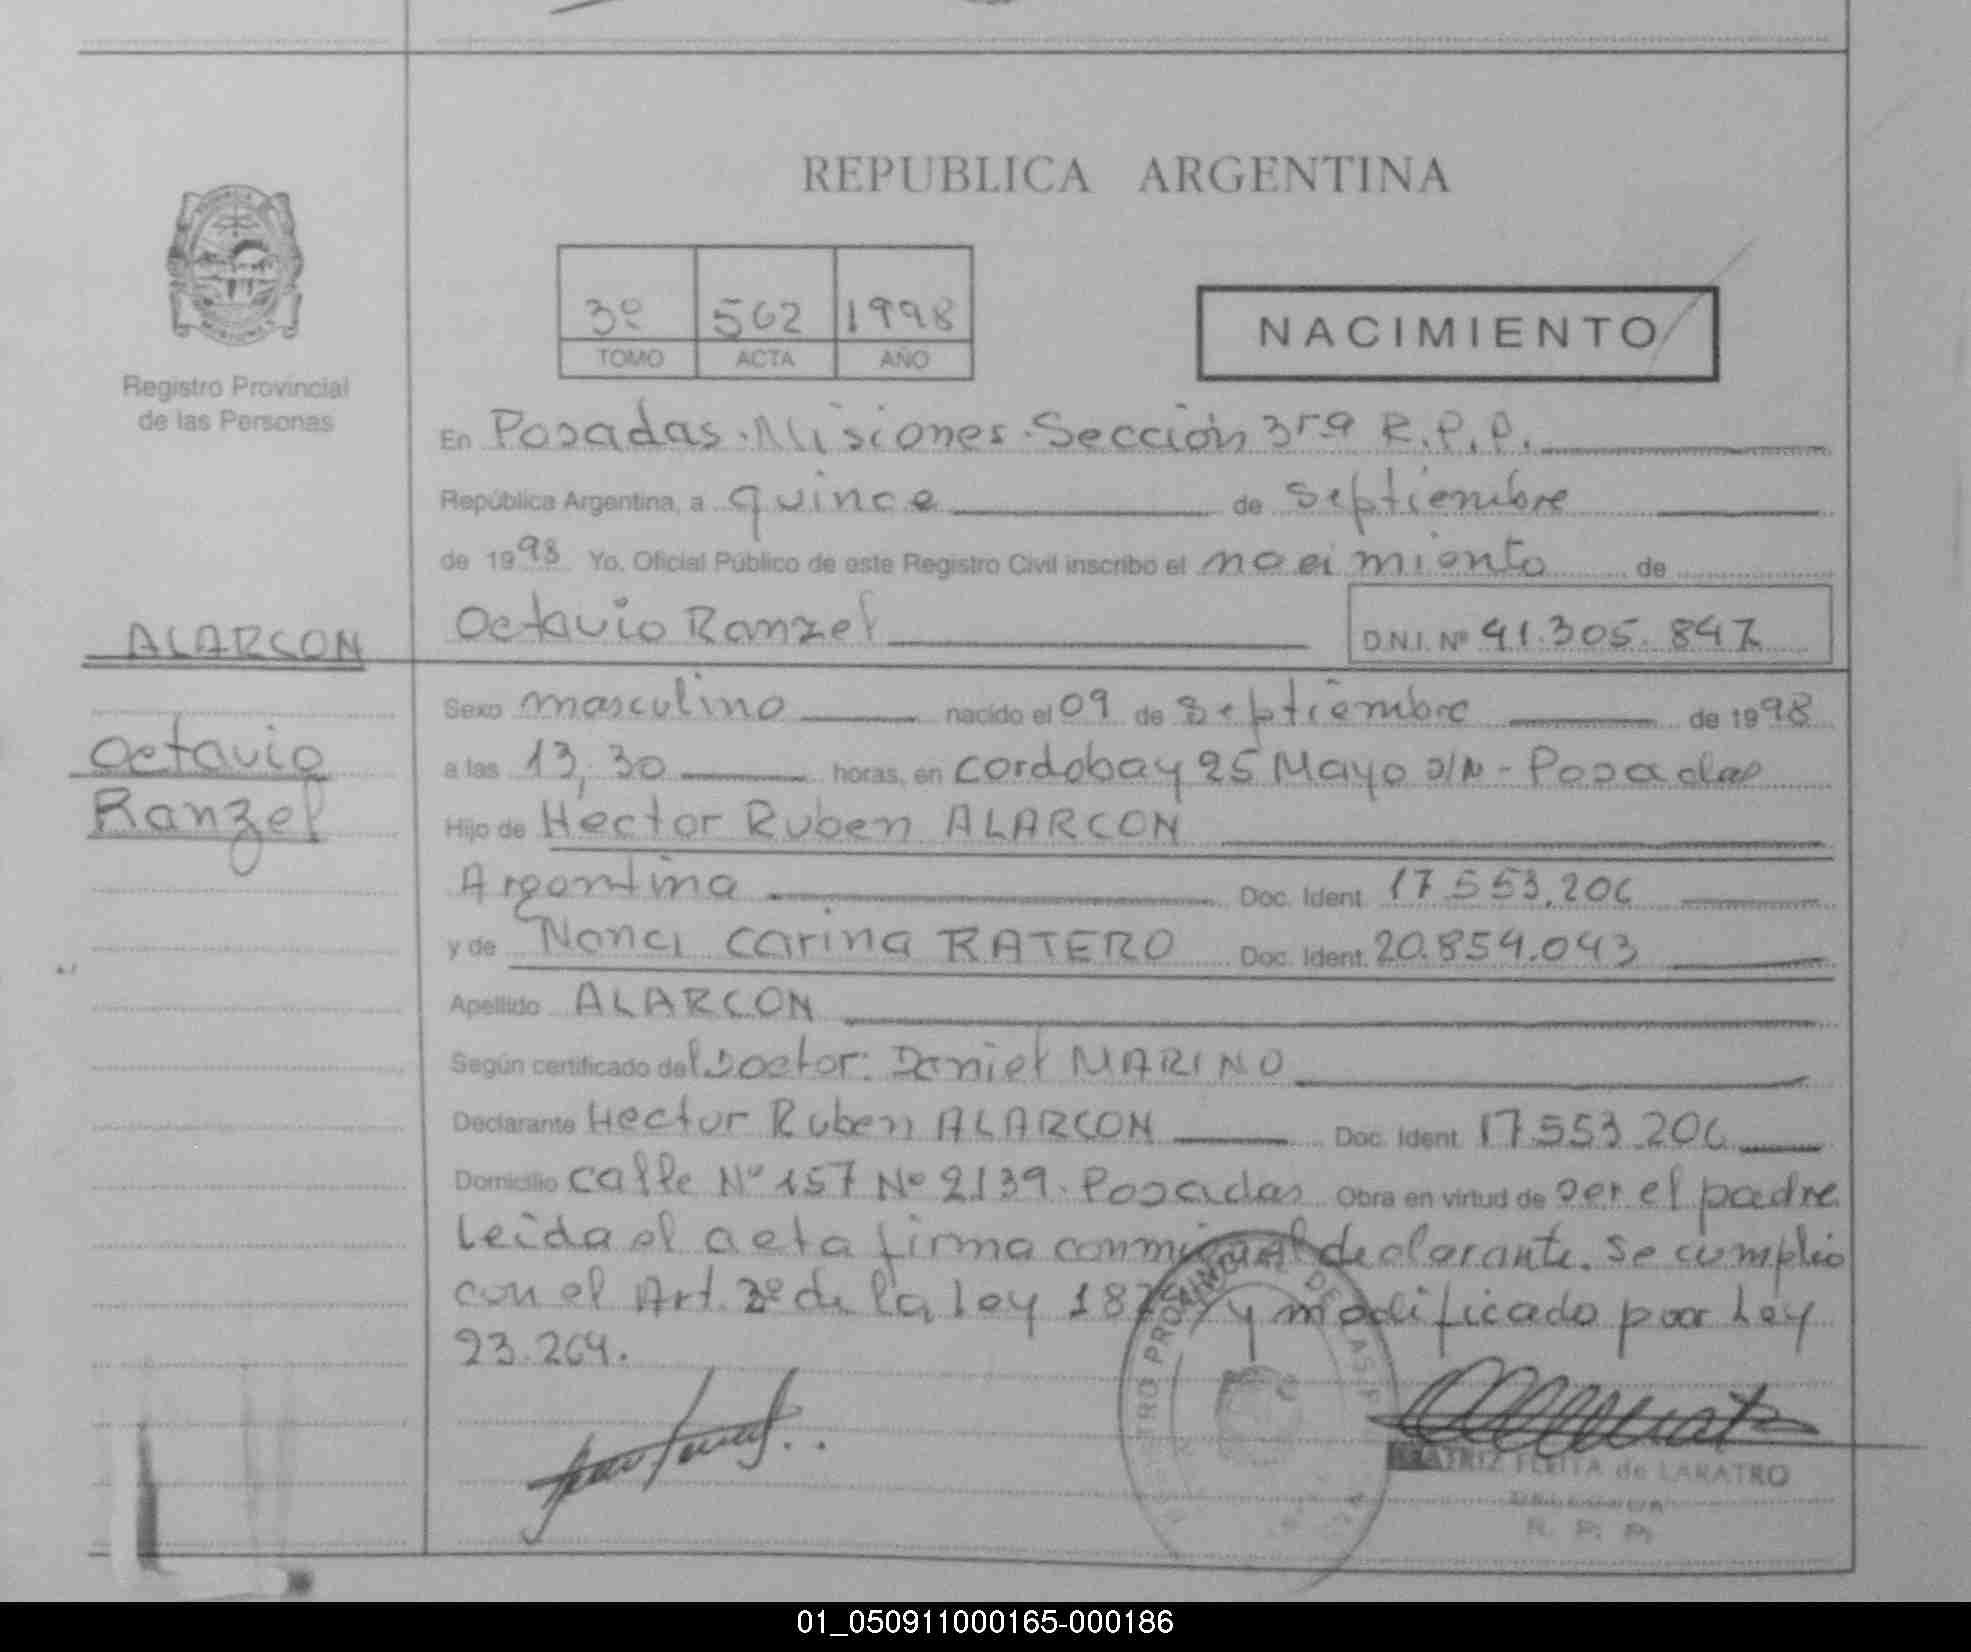 REPUBLICA ARGENTINA
3º 562 1998
TOMO ACTA AÑO
NACIMIENTO
Registro Provincial
de las Personas
En Posadas. Misiones. Sección 3ra R.P.P.
República Argentina, a quince de septiembre
de 1998 Yo, Oficial Público de este Registro Civil inscribo el nacimiento de
ALARCON
Octavio Ranzel
D.N.I. Nº 41.305.847
Octavio
Ranzel
Sexo masculino nacido el 09 de septiembre de 1998
a las 13,30 horas, en cordoba y 25 Mayo s/n - Posadas
Hijo de Hector Ruben ALARCON
Argentina Doc. Ident. 17.553.206
y de Nanci Carina RATERO Doc. Ident. 20.854.043
Apellido ALARCON
Según certificado del Doctor: Daniel MARINO
Declarante Hector Ruben ALARCON Doc. Ident. 17.553.206
Domicilio calle Nº 157 Nº 2139. Posadas Obra en virtud de ser el padre
Leida el acta firma conmigo el declarante. Se cumplio
con el Art. 2º de la ley y modificado por Ley
23.264.
PROVINCIAL DE LAS
BEATRIZ FLEITA de LARATRO
DELEGADA
R. P. P.
01_050911000165-000186